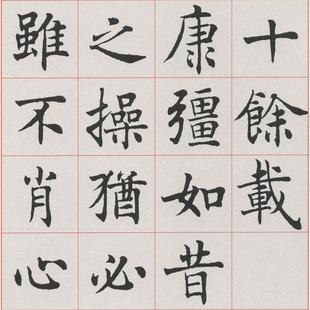 十餘載
康彊如昔
之操猶必
雖不肖心